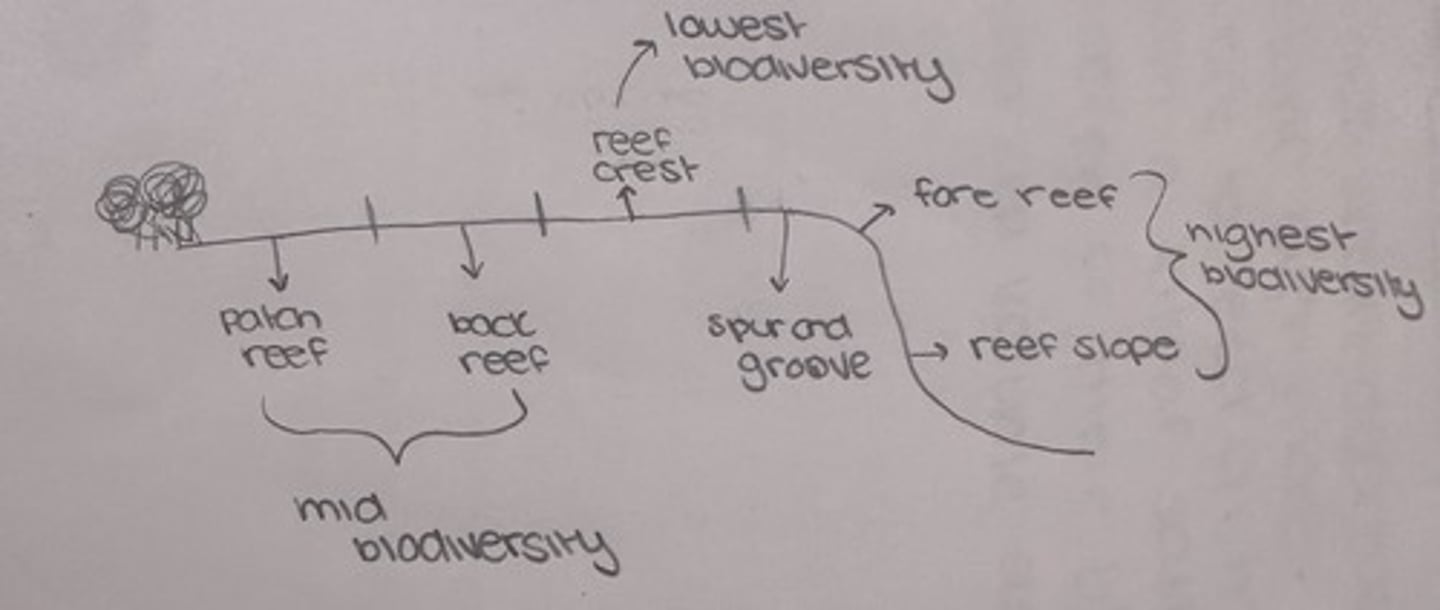 lowest
biodiversity
reef
crest
fore reef
highest
biodiversity
patch
reef
back
reef
spur and
groove
reef slope
mid
biodiversity